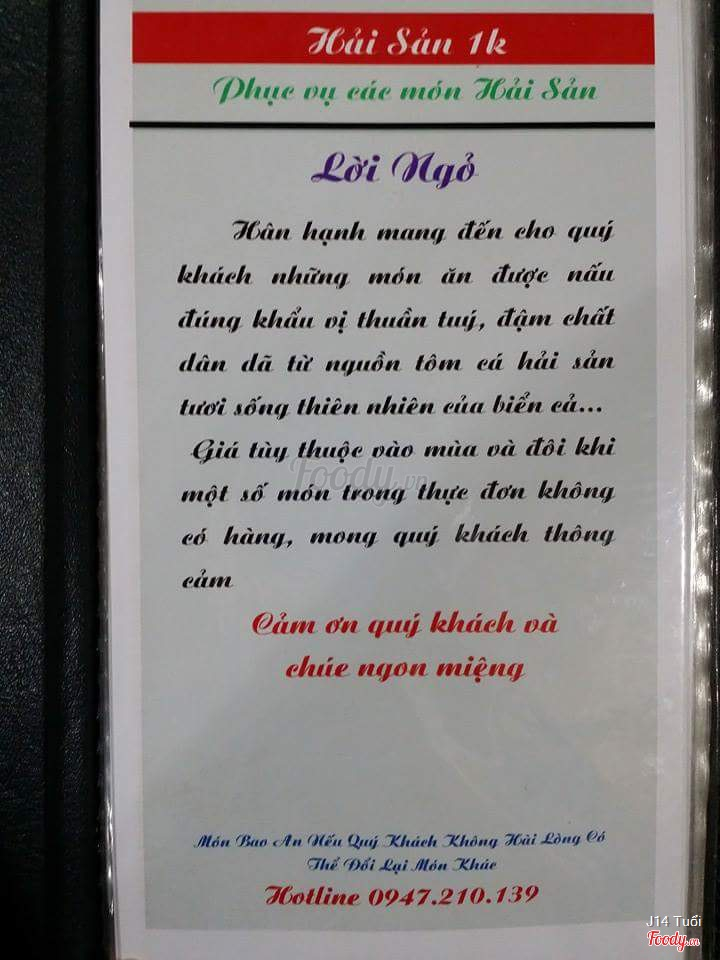 Hải Sản 1k
Phục vụ các món Hải Sản
Lời Ngỏ
Hân hạnh mang đến cho quý
khách những món ăn được nấu
đúng khẩu vị thuần tuý, đậm chất
dân dã từ nguồn tôm cá hải sản
tươi sống thiên nhiên của biển cả...
Giá tùy thuộc vào mùa và đôi khi
Foody.vn
một số món trong thực đơn không
có hàng, mong quý khách thông
cảm
Cảm ơn quý khách và
chúc ngon miệng
Món Bao Ăn Nếu Quý Khách Không Hài Lòng Có
Thể Đổi Lại Món Khác
Hotline 0947.210.139
J14 Tuổi
Foody.vn